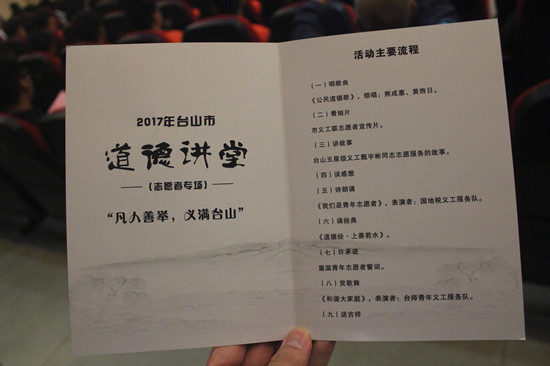 2017年台山市
道德讲堂
——（志愿者专场）——
“凡人善举，义满台山”
活动主要流程
（一）唱歌曲
《公民道德歌》，领唱：熊成惠、黄煦日。
（二）看短片
市义工联志愿者宣传片。
（三）讲故事
台山五星级义工甄宇彬同志志愿服务的故事。
（四）谈感想
（五）诗朗诵
《我们是青年志愿者》，表演者：国地税义工服务队。
（六）诵经典
《道德经·上善若水》。
（七）许承诺
重温青年志愿者誓词。
（八）赏歌舞
《和谐大家庭》，表演者：台师青年义工服务队。
（九）送吉祥